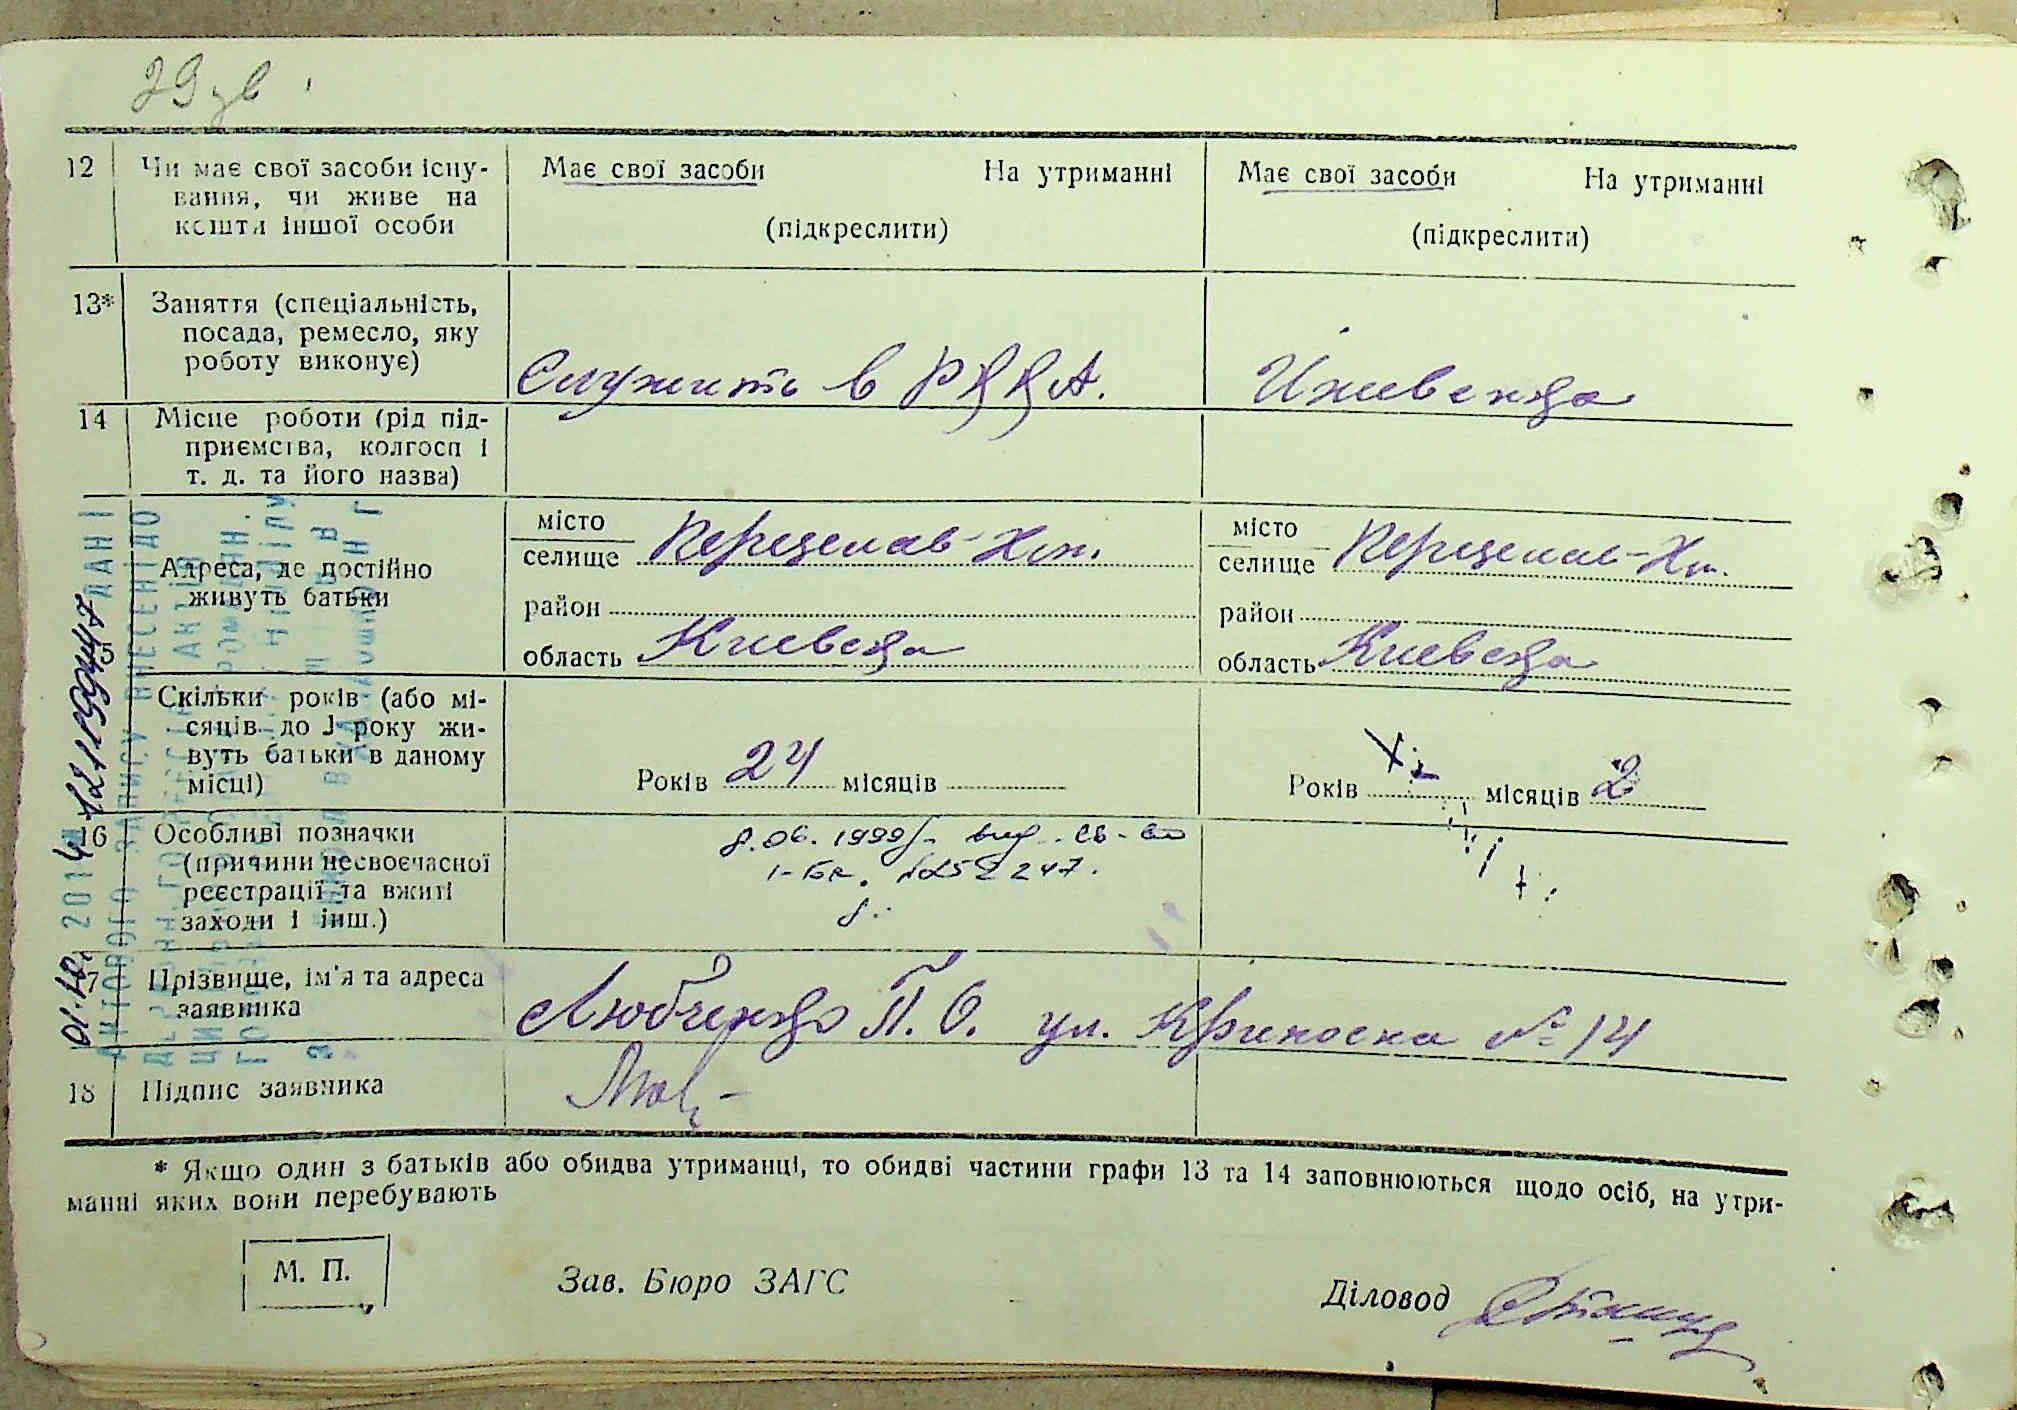 29 зв
12 Чи має свої засоби існу-
вання, чи живе на
кошти іншої особи
Має свої засоби На утриманні
(підкреслити)
Має свої засоби На утриманні
(підкреслити)
13* Заняття (спеціальність,
посада, ремесло, яку
роботу виконує)
Служить в РККА.
Иживенка
14 Місце роботи (рід під-
приємства, колгосп і
т. д. та його назва)
5 Адреса, де постійно
живуть батьки
місто
селище Переяслав-Хм.
район
область Киевска
місто
селище Переяслав-Хм.
район
область Киевска
Скільки років (або мі-
сяців до 1 року жи-
вуть батьки в даному
місці)
Років 24 місяців
Років місяців 2
16 Особливі позначки
(причини несвоєчасної
реєстрації та вжиті
заходи і інш.)
8.06.1999р. вид. св-во
І-БК. №252247.
7 Прізвище, ім'я та адреса
заявника
Любченко П. О. ул. Кривоноса № 14
18 Підпис заявника
* Якщо один з батьків або обидва утриманці, то обидві частини графи 13 та 14 заповнюються щодо осіб, на утри-
манні яких вони перебувають
М. П.
Зав. Бюро ЗАГС
Діловод
01.12.2014